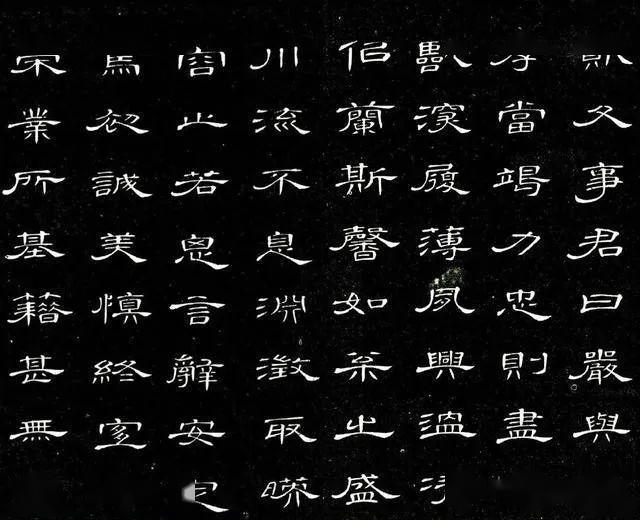 父事君曰嚴與
當竭力忠則盡
深履薄夙興溫
似蘭斯馨如松之盛
川流不息淵澄取暎
容止若思言辭安
初誠美慎終宜
業所基籍甚無